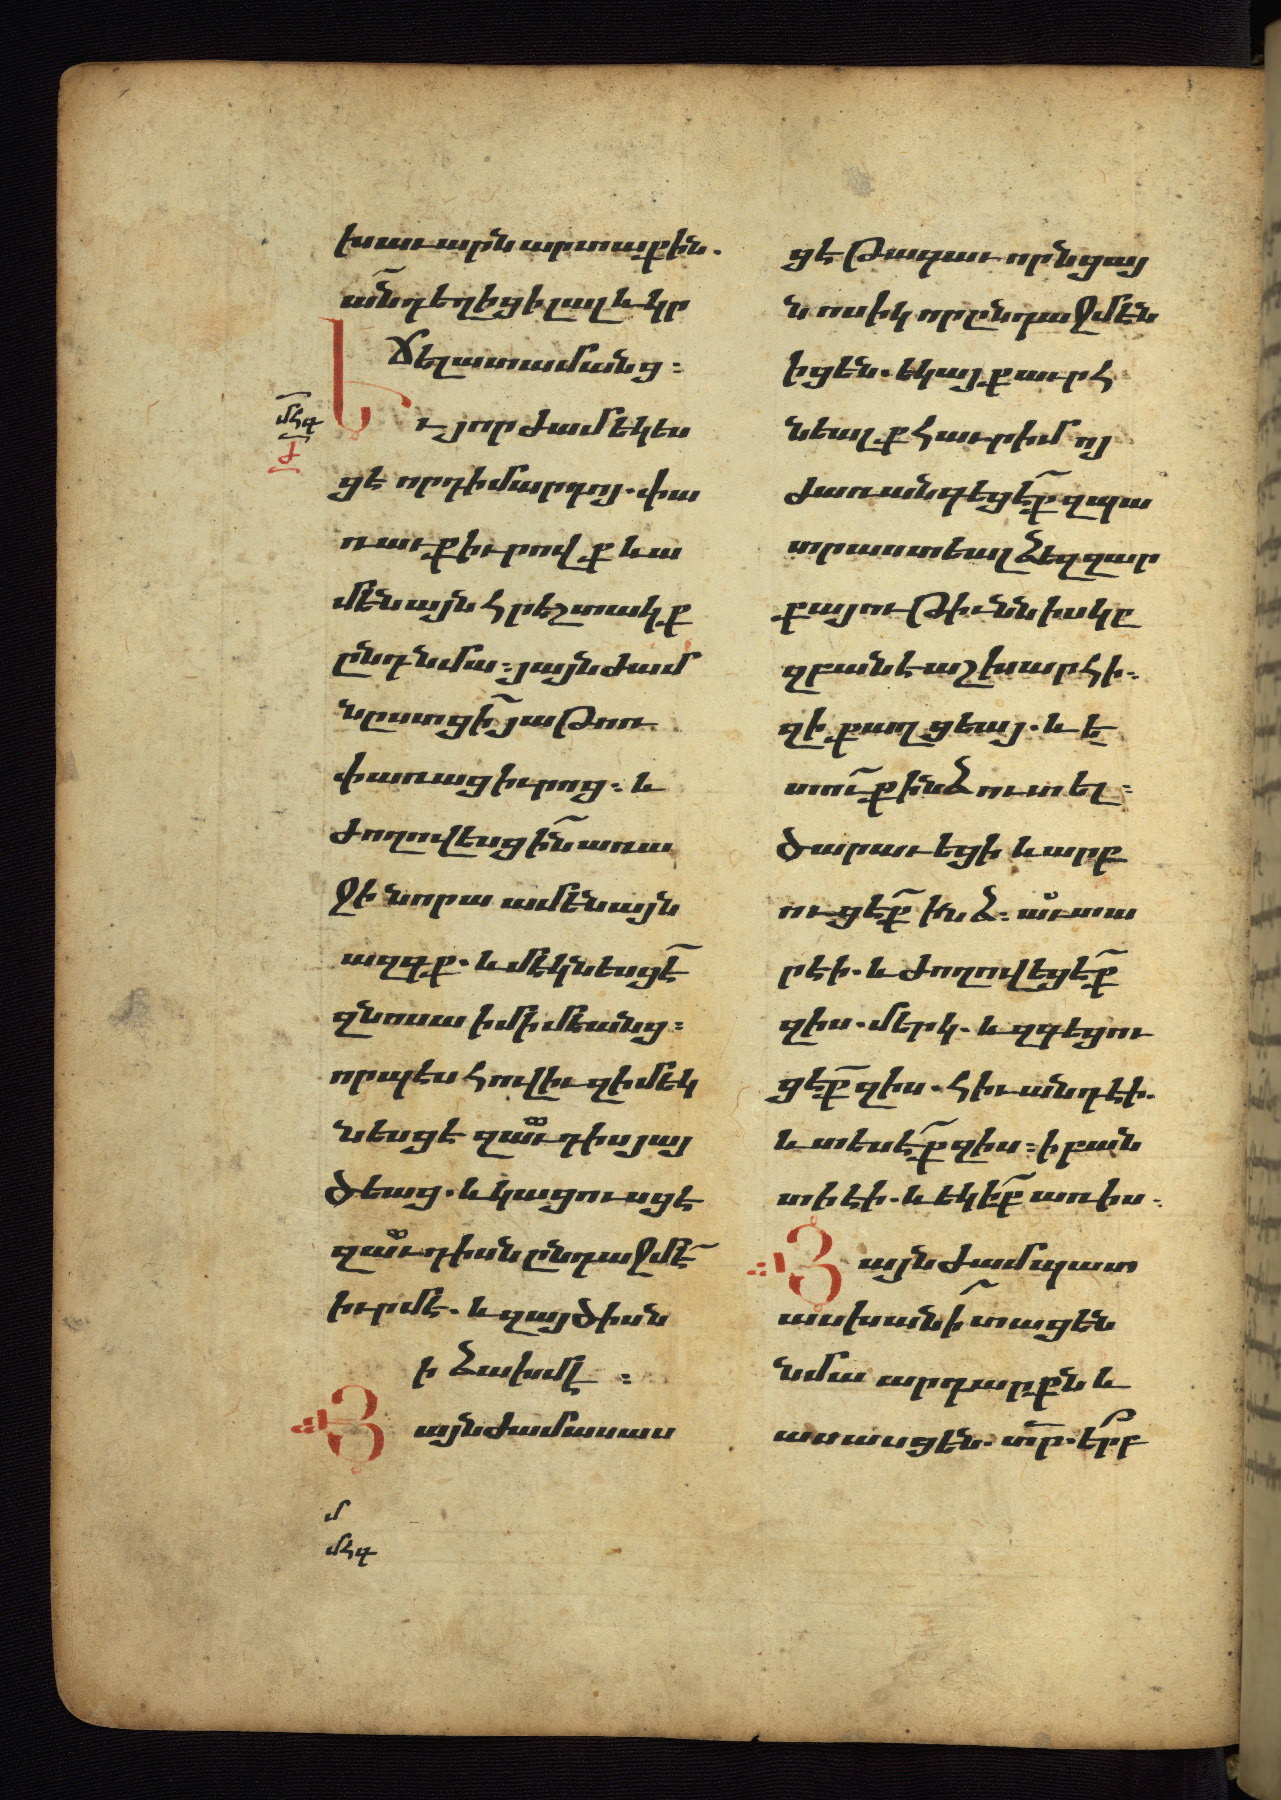 խաւարն արտաքին.
անդ եղիցի լալ և կր
ճել ատամանց:
մհգ
Ժ
Եւ յորժամ եկես
ցէ որդի մարդոյ. փա
ռաւք իւրովք և ա
մէնայն հրեշտակք
ընդ նմա: յայնժամ
նըստցի յաթոռ
փառաց իւրոց: և
ժողովեսցին առա
ջի նորա ամէնայն
ազգք. և մեկնեսցէ
զնոսա ի մի մեանց:
որպէս հովիւ զի մեկ
նեսցէ զաւդիս յայ
ծեաց. և կացուսցէ
զաւդիսն ընդ աջմէ
իւրմէ. և զայծիսն
ի ձախմէ:
Յայնժամ ասաս
մ
մհգ
ցէ թագաւորն ցայ
նոսիկ որ ընդ աջմէն
իցեն. եկայք աւրհ
նեալք հաւր իմոյ
ժառանգեցէք զպա
տրաստեալ ձեզ զար
քայութիւնն ի սկը
զբանէ աշխարհի:
զի քաղցեայ. և ե
տուք ինձ ուտել:
ծարաւեցի և արբ
ուցէք ինձ: աւտա
րէի. և ժողովեցէք
զիս. մերկ. և զգեցու
ցէք զիս. հիւանդ էի.
և տեսէք զիս: ի բան
տի էի. և եկիք առ իս:
Յայնժամ պատ
ասխանի տացեն
նմա արդարքն և
ասասցեն. տր. երբ